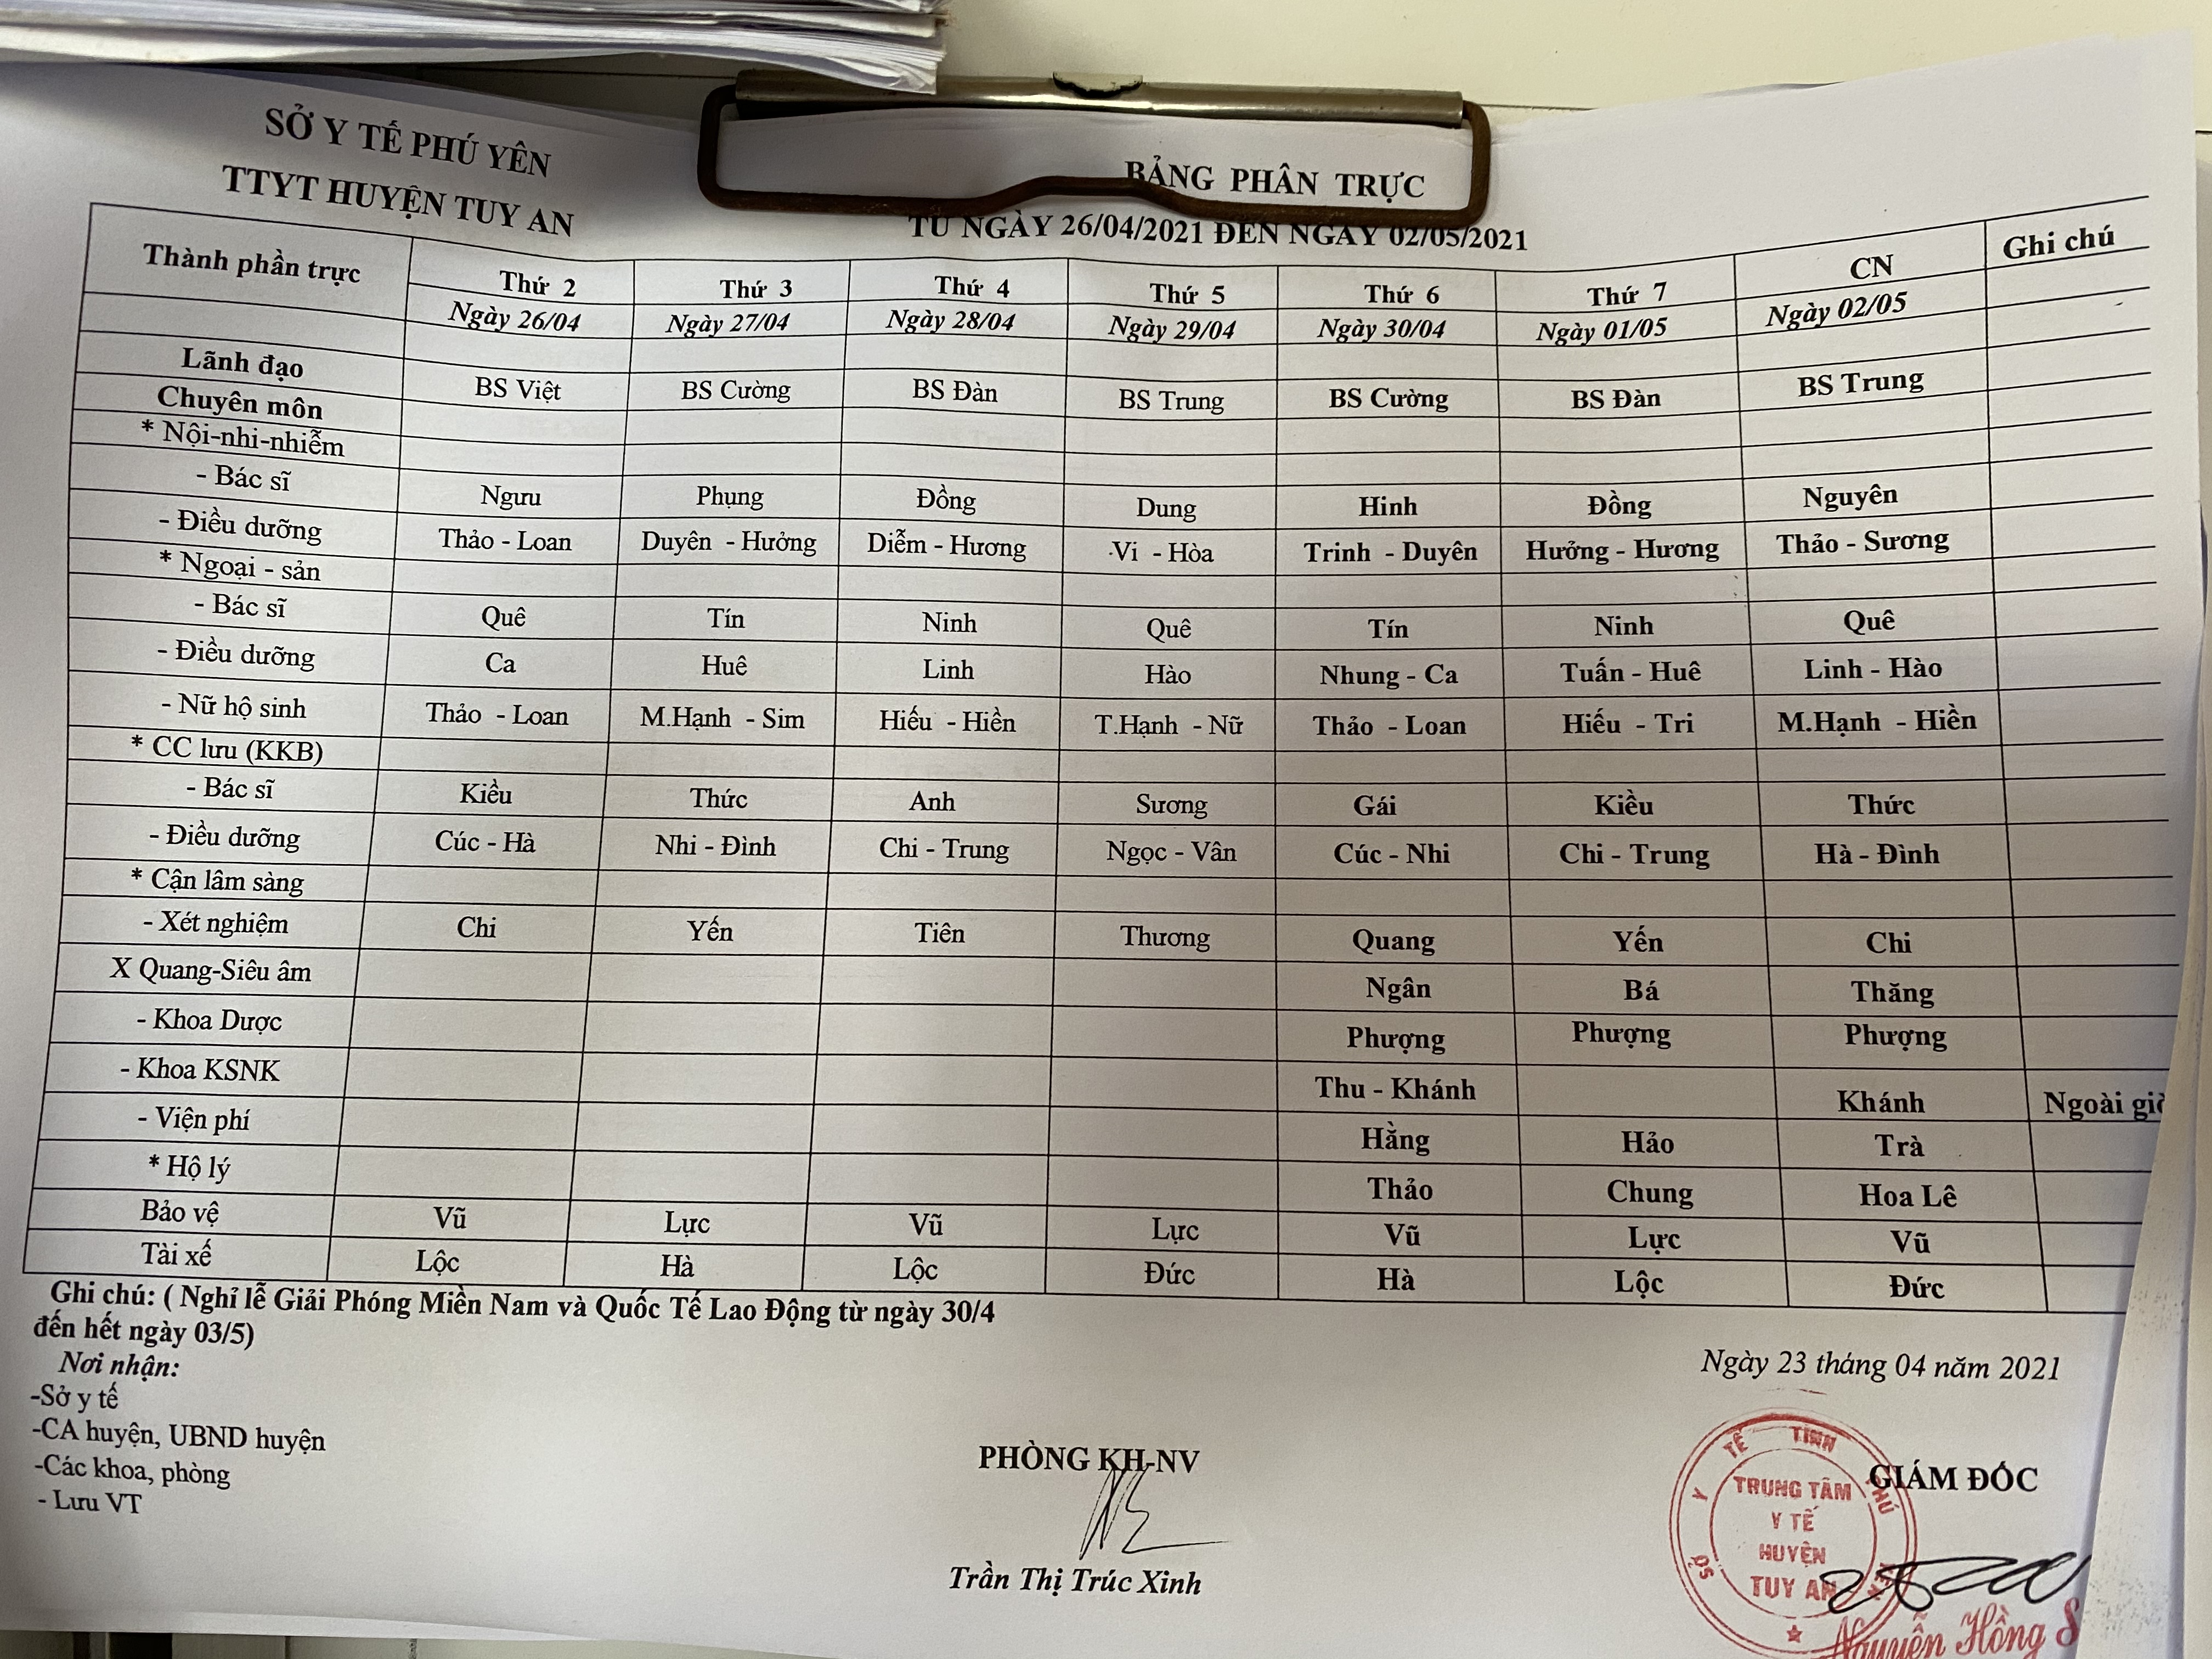 SỞ Y TẾ PHÚ YÊN
TTYT HUYỆN TUY AN
BẢNG PHÂN TRỰC
TỪ NGÀY 26/04/2021 ĐẾN NGÀY 02/05/2021
Thành phần trực Thứ 2 Thứ 3 Thứ 4 Thứ 5 Thứ 6 Thứ 7 CN Ghi chú
Ngày 26/04 Ngày 27/04 Ngày 28/04 Ngày 29/04 Ngày 30/04 Ngày 01/05 Ngày 02/05
Lãnh đạo BS Việt BS Cường BS Đàn BS Trung BS Cường BS Đàn BS Trung
Chuyên môn
* Nội-nhi-nhiễm
- Bác sĩ Ngưu Phụng Đồng Dung Hinh Đồng Nguyên
- Điều dưỡng Thảo - Loan Duyên - Hưởng Diễm - Hương Vi - Hòa Trinh - Duyên Hưởng - Hương Thảo - Sương
* Ngoại - sản
- Bác sĩ Quê Tín Ninh Quê Tín Ninh Quê
- Điều dưỡng Ca Huê Linh Hào Nhung - Ca Tuấn - Huê Linh - Hào
- Nữ hộ sinh Thảo - Loan M.Hạnh - Sim Hiếu - Hiền T.Hạnh - Nữ Thảo - Loan Hiếu - Tri M.Hạnh - Hiền
* CC lưu (KKB)
- Bác sĩ Kiều Thức Anh Sương Gái Kiều Thức
- Điều dưỡng Cúc - Hà Nhi - Đình Chi - Trung Ngọc - Vân Cúc - Nhi Chi - Trung Hà - Đình
* Cận lâm sàng
- Xét nghiệm Chi Yến Tiên Thương Quang Yến Chi
X Quang-Siêu âm Ngân Bá Thăng
- Khoa Dược Phượng Phượng Phượng
- Khoa KSNK Thu - Khánh Khánh Ngoài giờ
- Viện phí Hằng Hảo Trà
* Hộ lý Thảo Chung Hoa Lê
Bảo vệ Vũ Lực Vũ Lực Vũ Lực Vũ
Tài xế Lộc Hà Lộc Đức Hà Lộc Đức
Ghi chú: ( Nghỉ lễ Giải Phóng Miền Nam và Quốc Tế Lao Động từ ngày 30/4
đến hết ngày 03/5)
Nơi nhận:
-Sở y tế
-CA huyện, UBND huyện
-Các khoa, phòng
- Lưu VT
PHÒNG KH-NV
Trần Thị Trúc Xinh
Ngày 23 tháng 04 năm 2021
GIÁM ĐỐC
SỞ Y TẾ TỈNH PHÚ YÊN
TRUNG TÂM
Y TẾ
HUYỆN
TUY AN
Nguyễn Hồng S